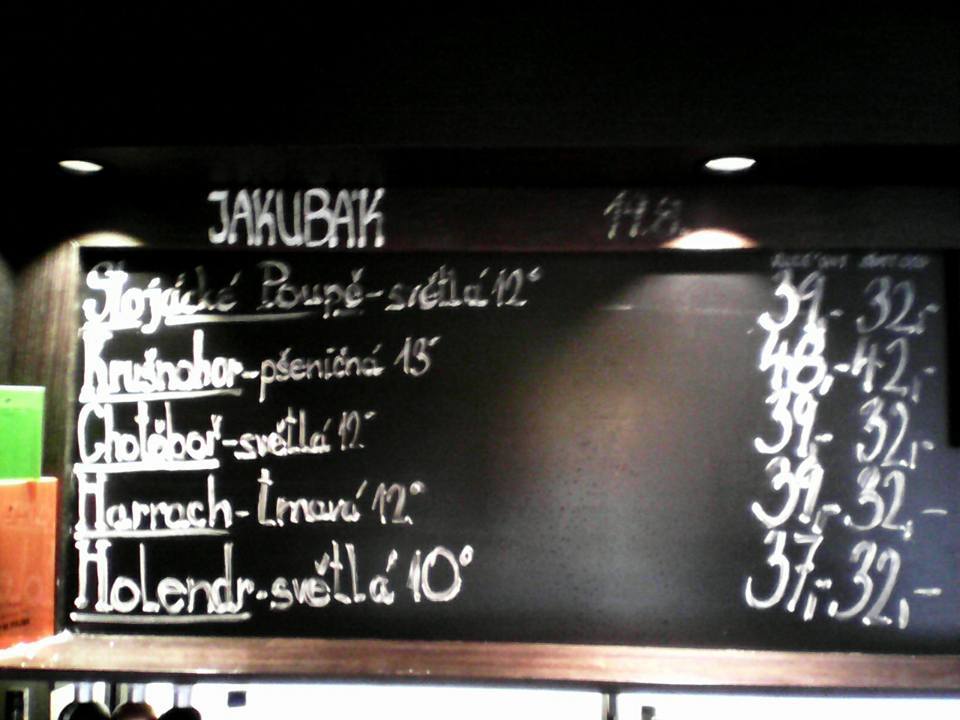 JAKUBÁK 14.8.
Slojácké Poupě-světlá 12° 39,- 32,-
Krušnohor-pšeničná 13° 48,- 42,-
Chotěboř-světlá 12° 39,- 32,-
Harrach-tmavá 12° 39,- 32,-
Holendr-světlá 10° 37,- 32,-